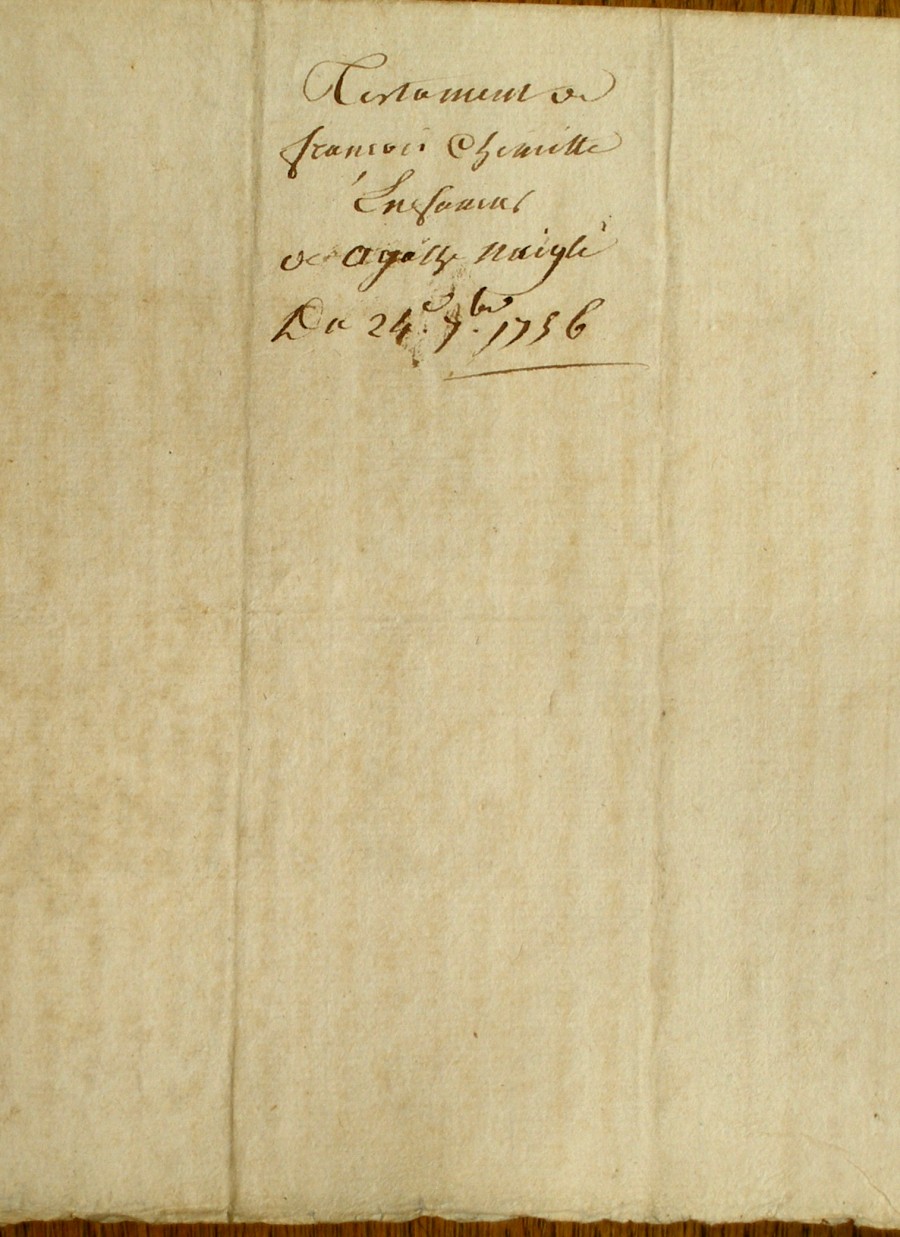 Testament de
françois Chemitte
En faveur
de agathe naigle
Du 24.e 7.bre 1756